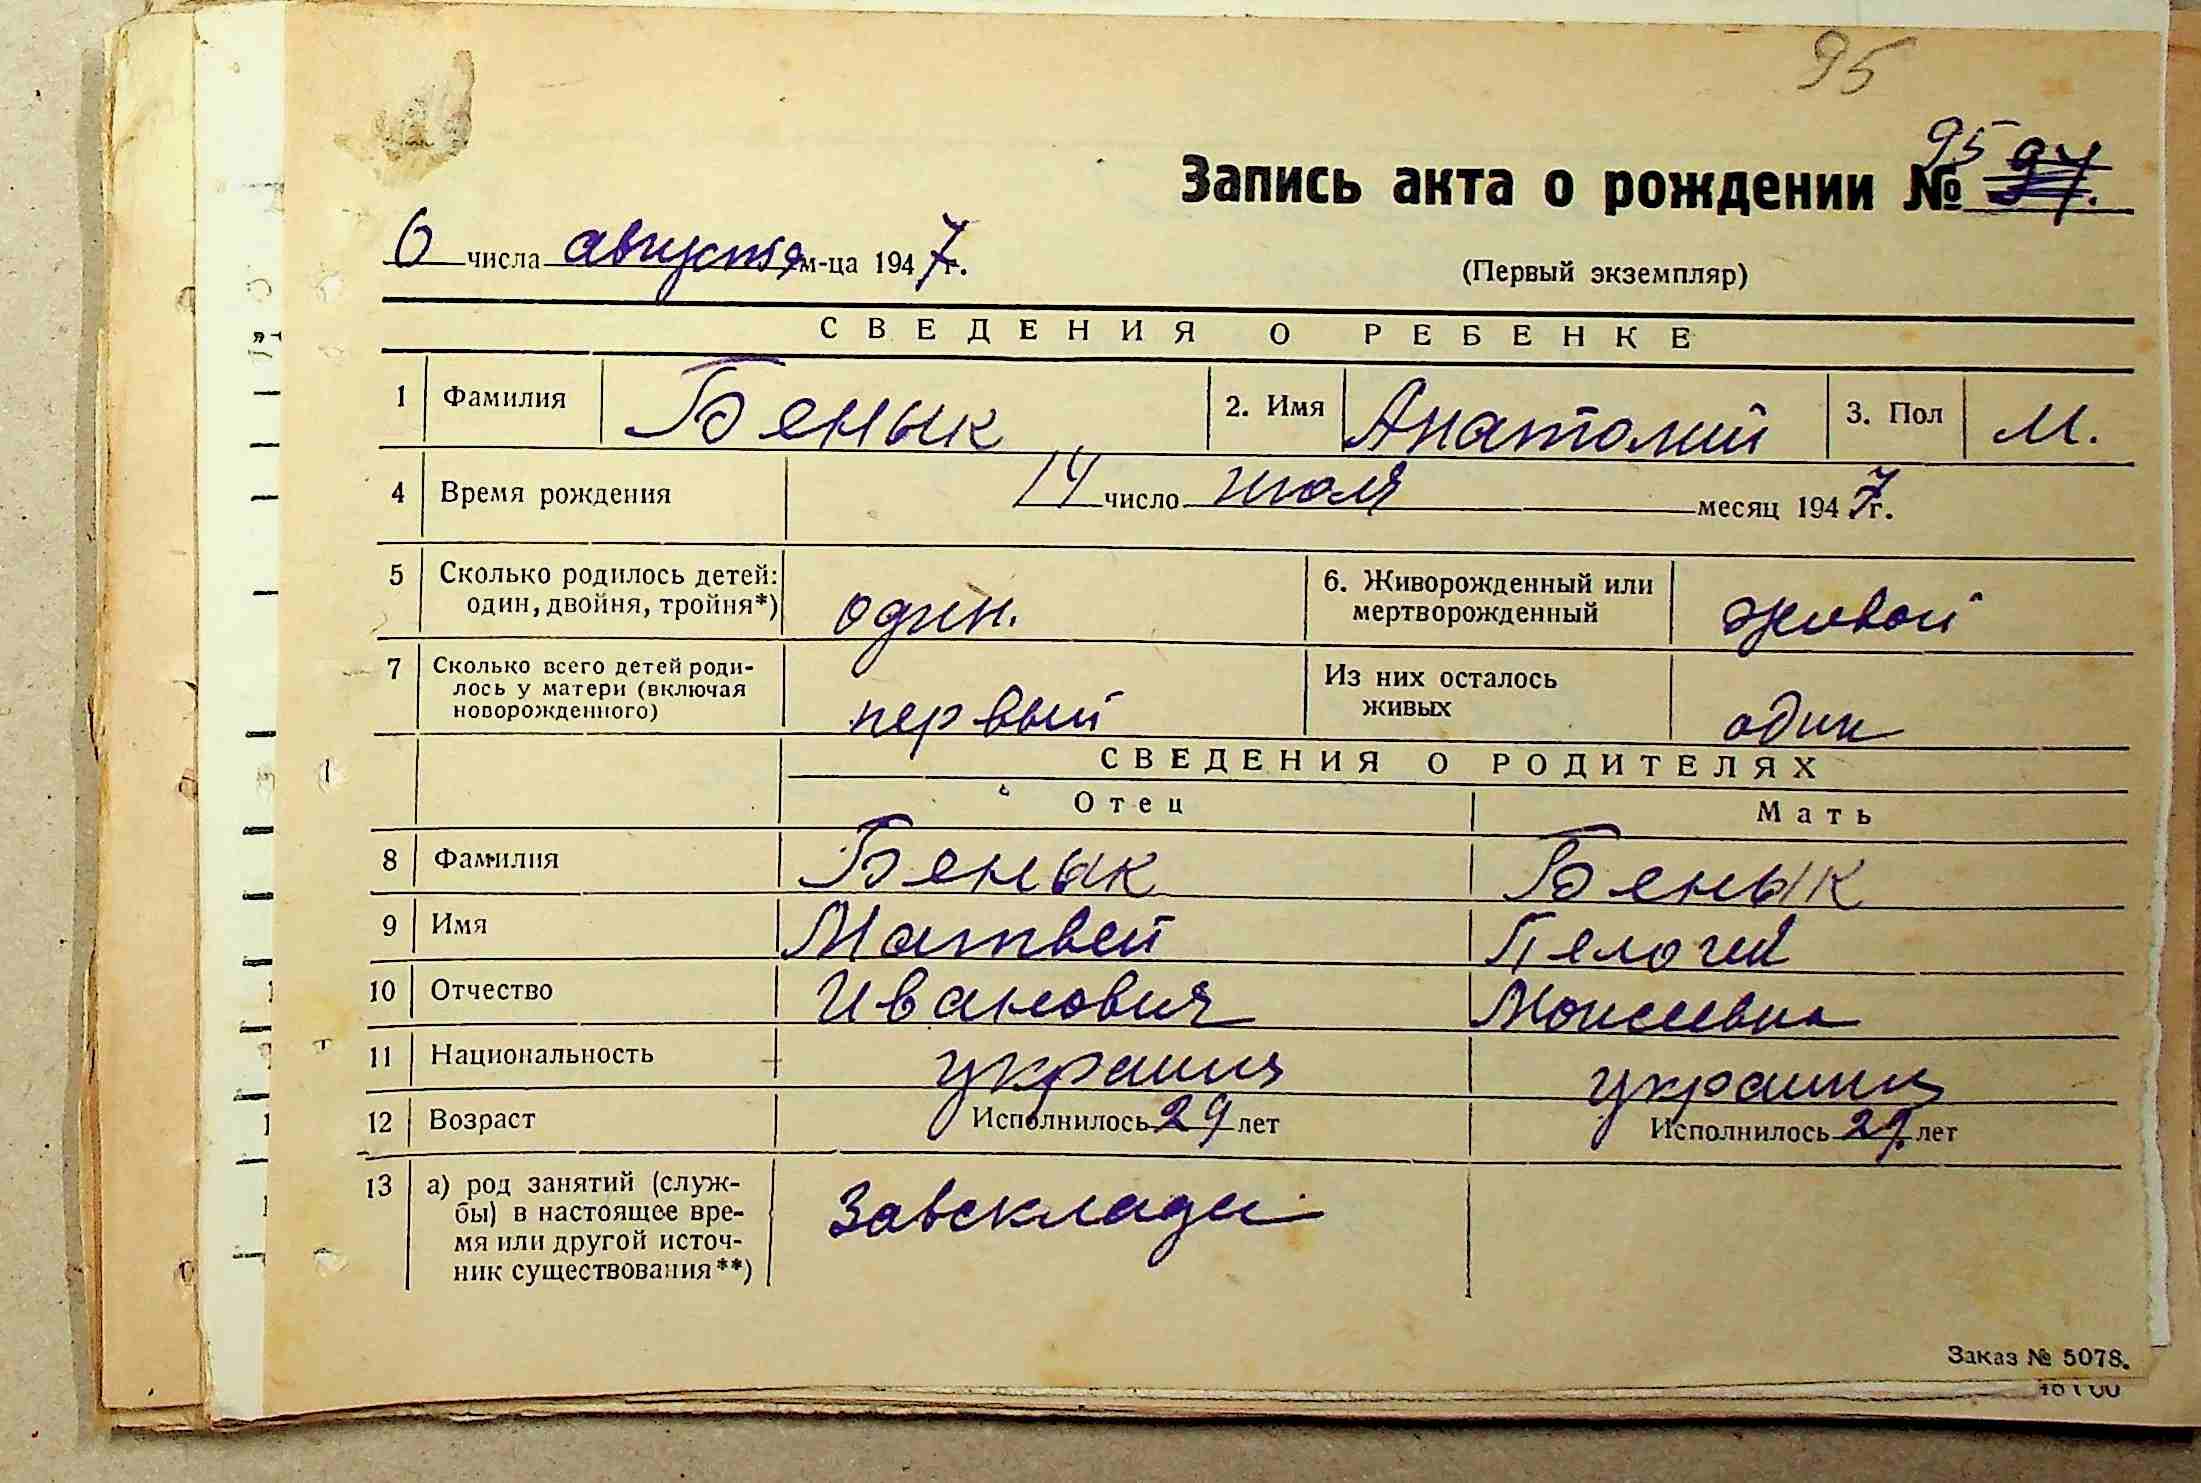 95
Запись акта о рождении № 95 97.
6 числа августа м-ца 1947г.
(Первый экземпляр)
СВЕДЕНИЯ О РЕБЕНКЕ
1 Фамилия Бенык 2. Имя Анатолий 3. Пол М.
4 Время рождения 14 число июля месяц 1947г.
5 Сколько родилось детей: один. 6. Живорожденный или живой
один, двойня, тройня*) мертворожденный
7 Сколько всего детей роди- Из них осталось
лось у матери (включая первый живых один
новорожденного)
СВЕДЕНИЯ О РОДИТЕЛЯХ
Отец Мать
8 Фамилия Бенык Бенык
9 Имя Матвей Пелогей
10 Отчество Иванович Моисеевна
11 Национальность украинц украинц
12 Возраст Исполнилось 29 лет Исполнилось 27. лет
13 а) род занятий (служ-
бы) в настоящее вре- Завсклады
мя или другой источ-
ник существования**)
Заказ № 5078.